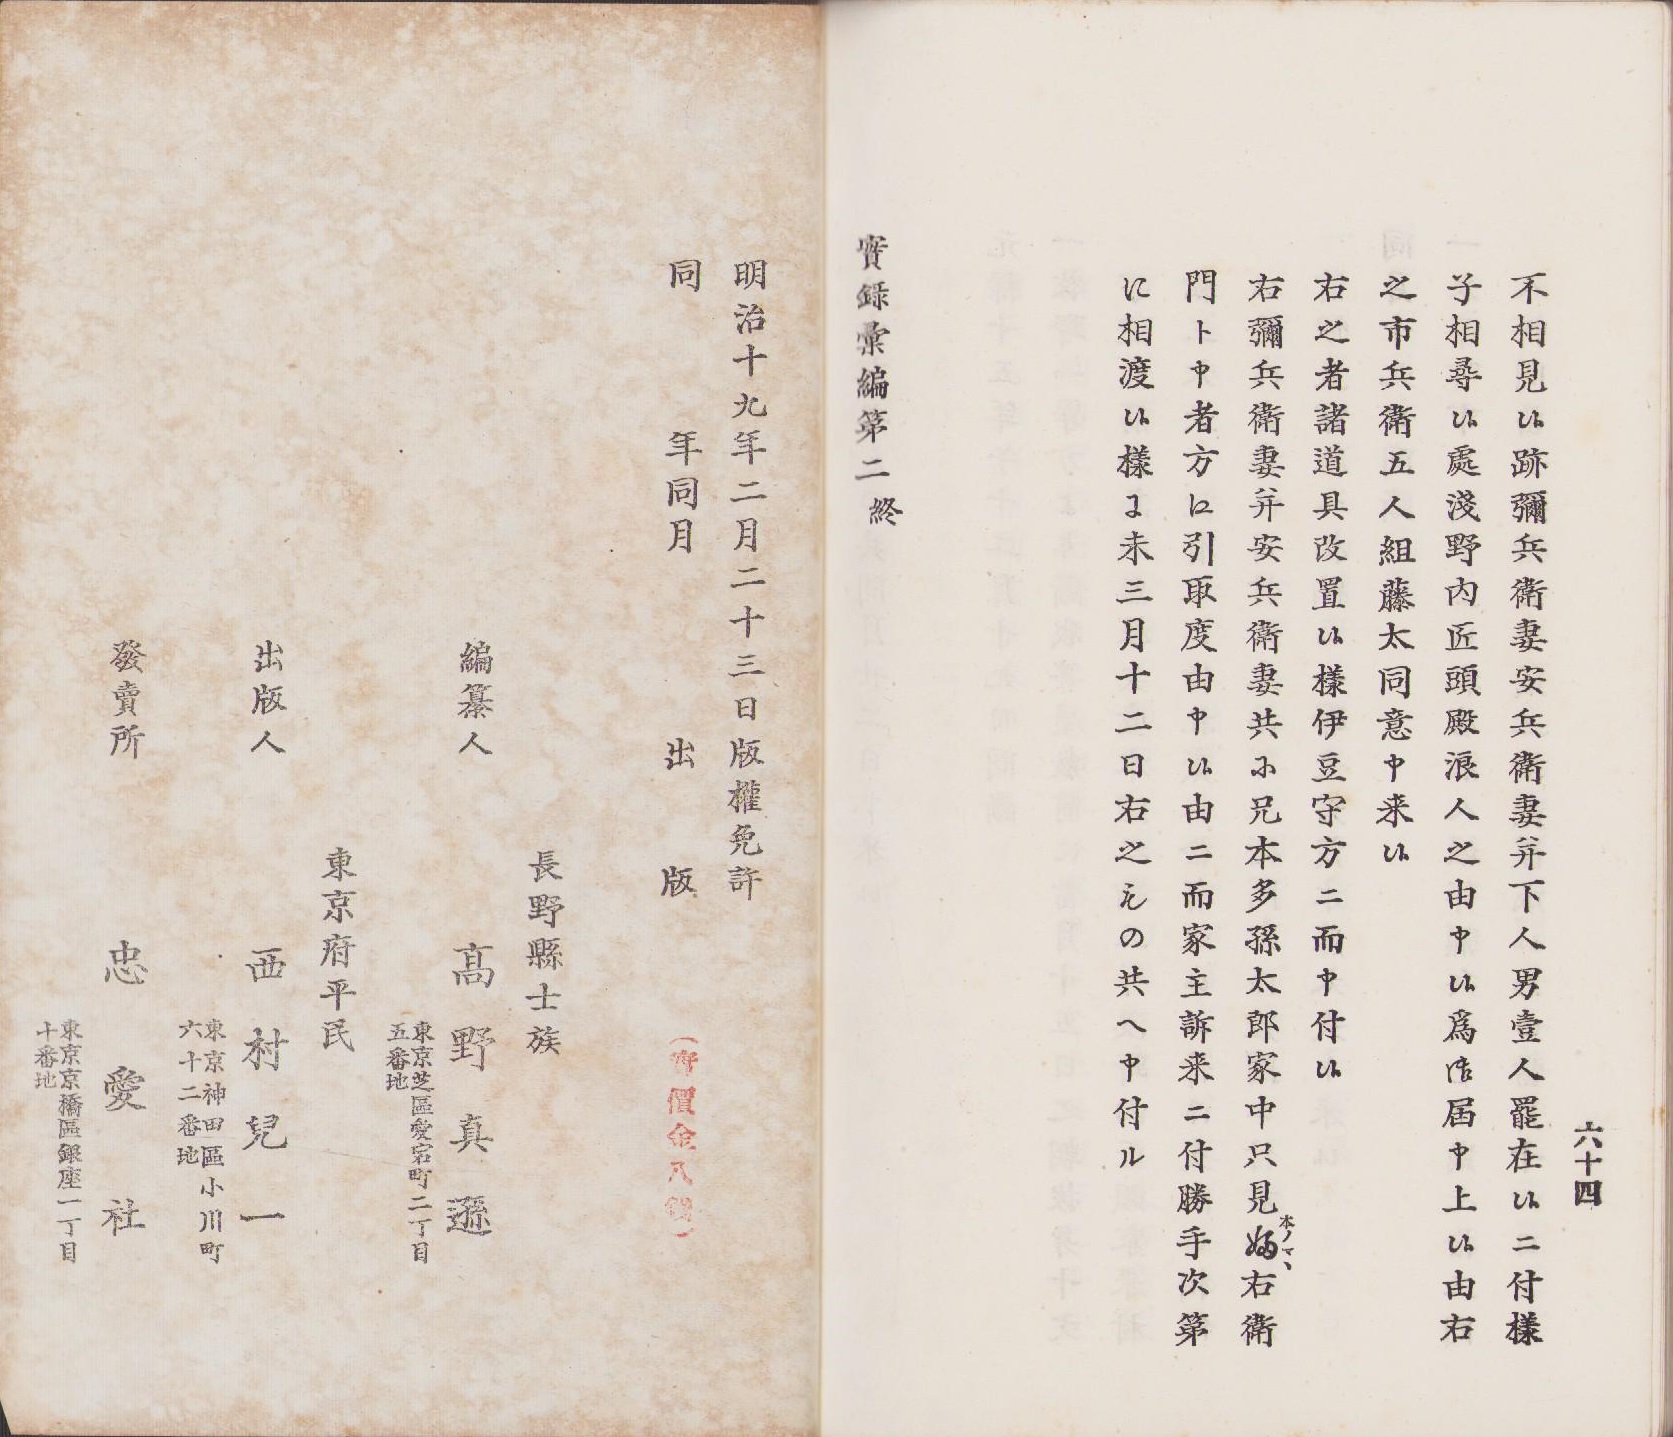 六十四
不相見候跡彌兵衛妻安兵衛妻并下人男壹人罷在候ニ付樣
子相尋候處淺野内匠頭殿浪人之由申候爲御屆申上候由右
之市兵衛五人組藤太同意申来候
右之者諸道具改置候樣伊豆守方ニ而申付候
右彌兵衛妻并安兵衛妻共ニ兄本多孫太郎家中只見
右衛
本ノマヽ
門ト申者方に引取度由申候由ニ而家主訴来ニ付勝手次第
に相渡候樣に未三月十二日右之もの共へ申付ル
實録彙編第二終
明治十九年二月二十三日版權免許
同年同月出版
(實價金八錢)
長野縣士族
編纂人 高野真遜
東京芝區愛宕町二丁目
五番地
東京府平民
出版人 西村兒一
東京神田區小川町
六十二番地
發賣所 忠愛社
東京京橋區銀座一丁目
十番地